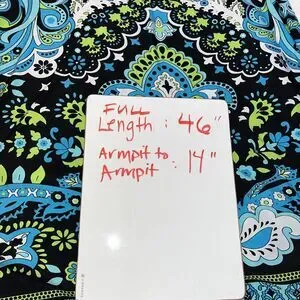 FULL
Length : 46"
Armpit to
Armpit : 14"